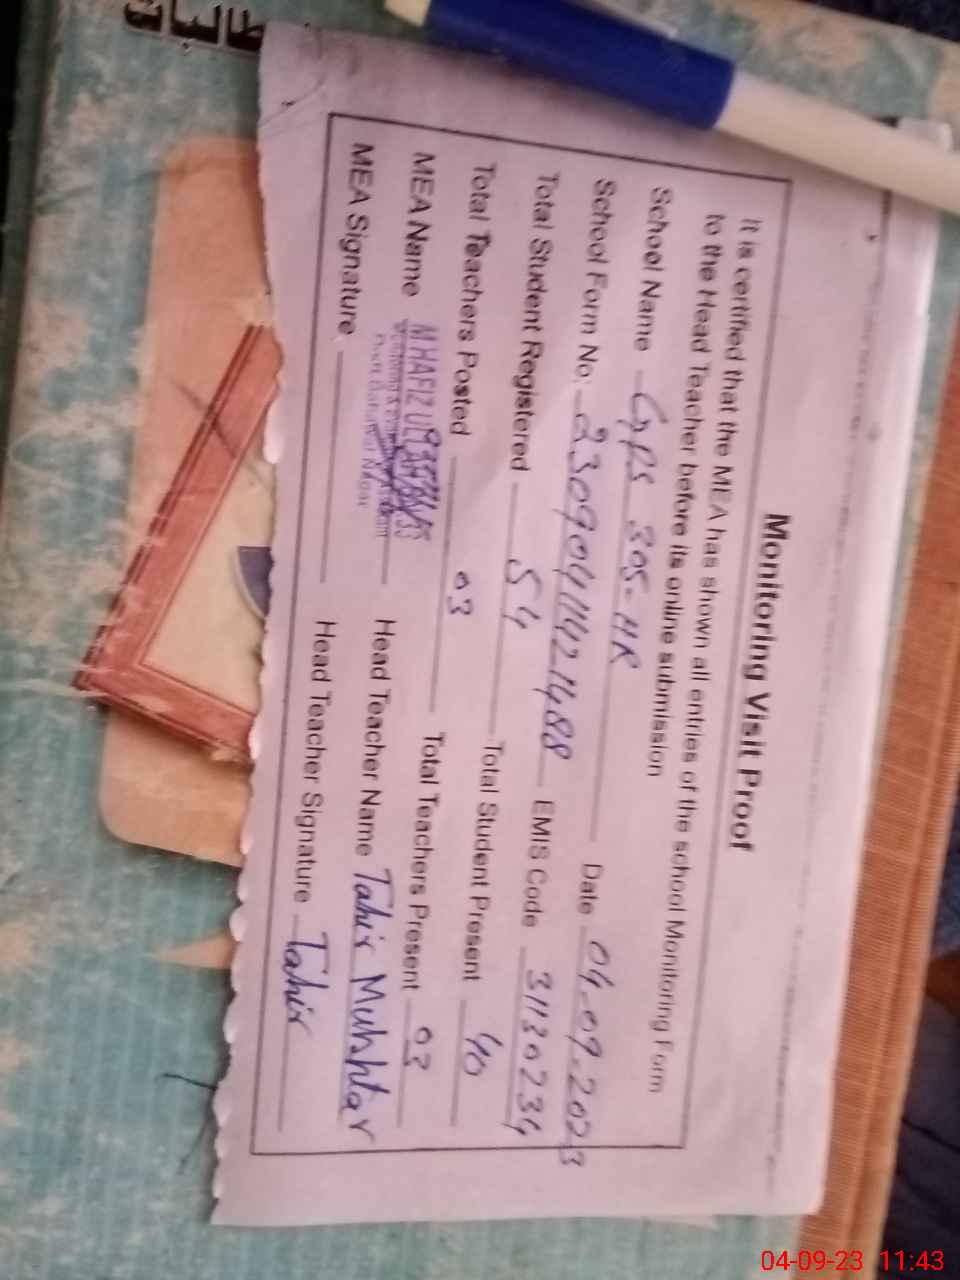 طالبات
Monitoring Visit Proof
It is certified that the MEA has shown all entries of the school Monitoring Form
to the Head Teacher before its online submission
School Name GPS 305-HR Date 04-09-2023
School Form No: 23090411421488 EMIS Code 31130234
Total Student Registered 54 Total Student Present 40
Total Teachers Posted 03 Total Teachers Present 03
MEA Name M HAFIZ Head Teacher Name Tahir Mushtar
MEA Signature Head Teacher Signature Tahir
04-09-23 11:43